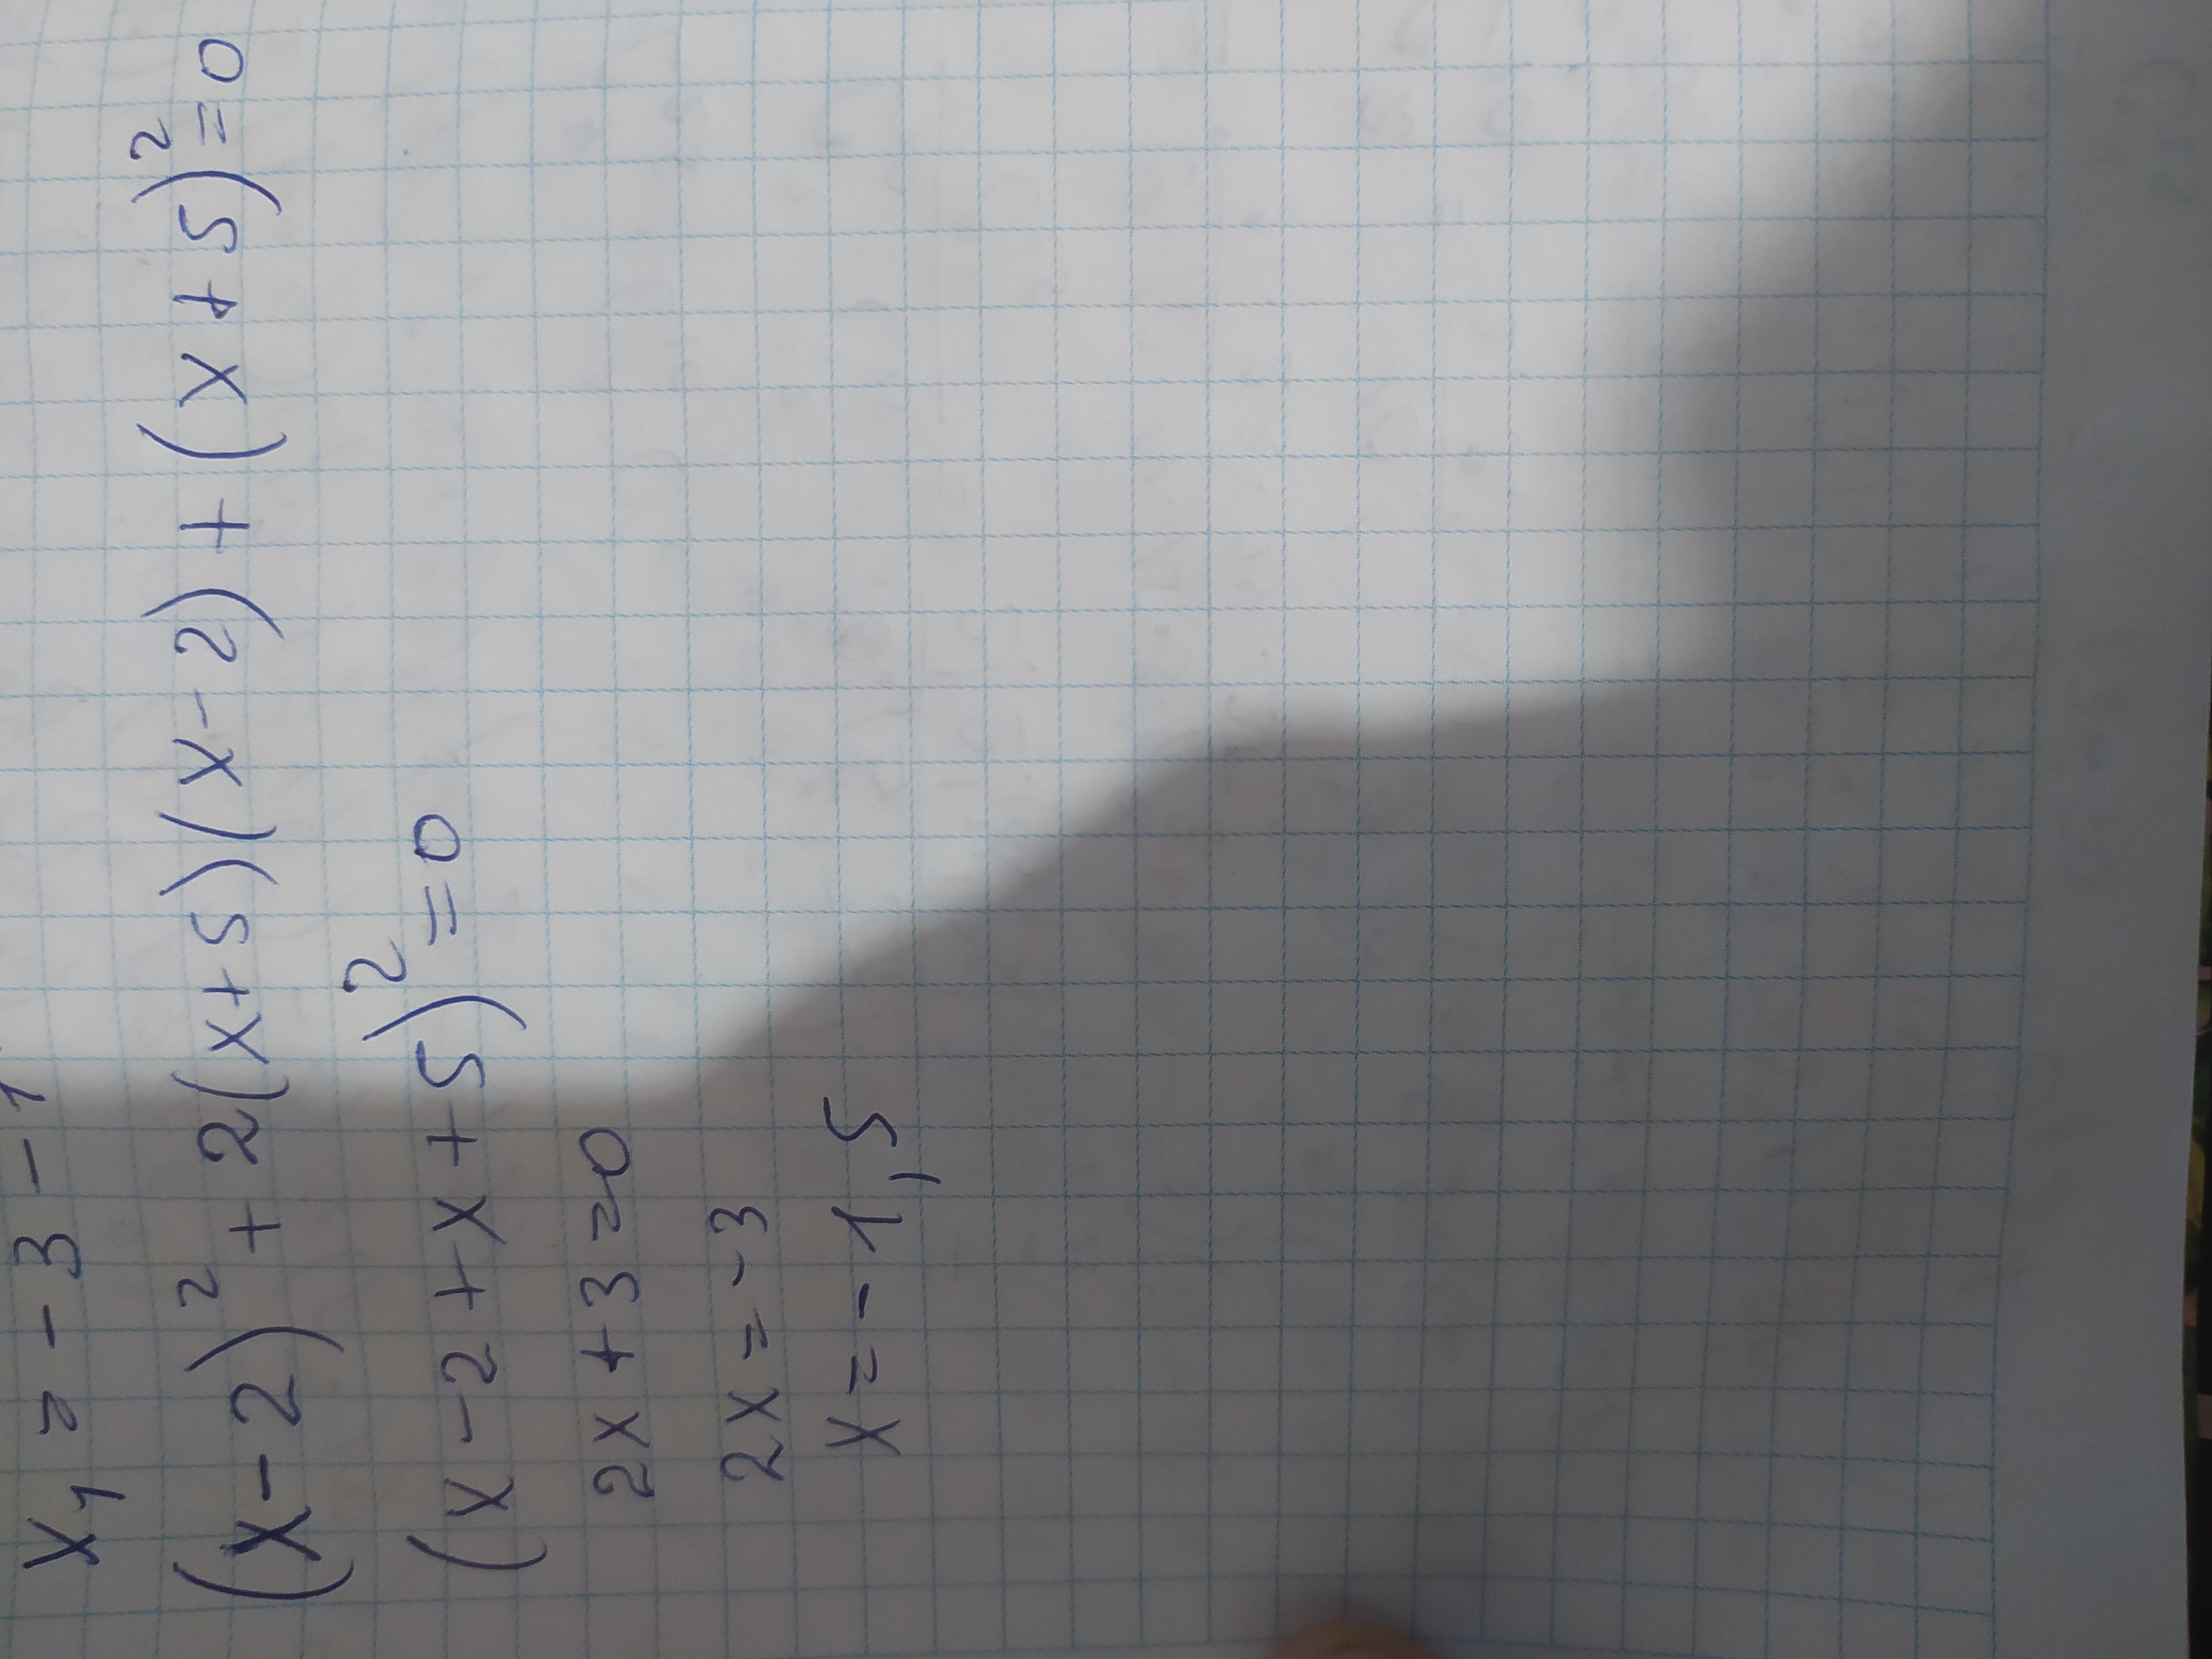 x₁ = - 3 - 1
(x - 2)² + 2(x+5)(x-2) + (x+5)² = 0
(x - 2 + x + 5)² = 0
2x + 3 = 0
2x = -3
x = -1,5